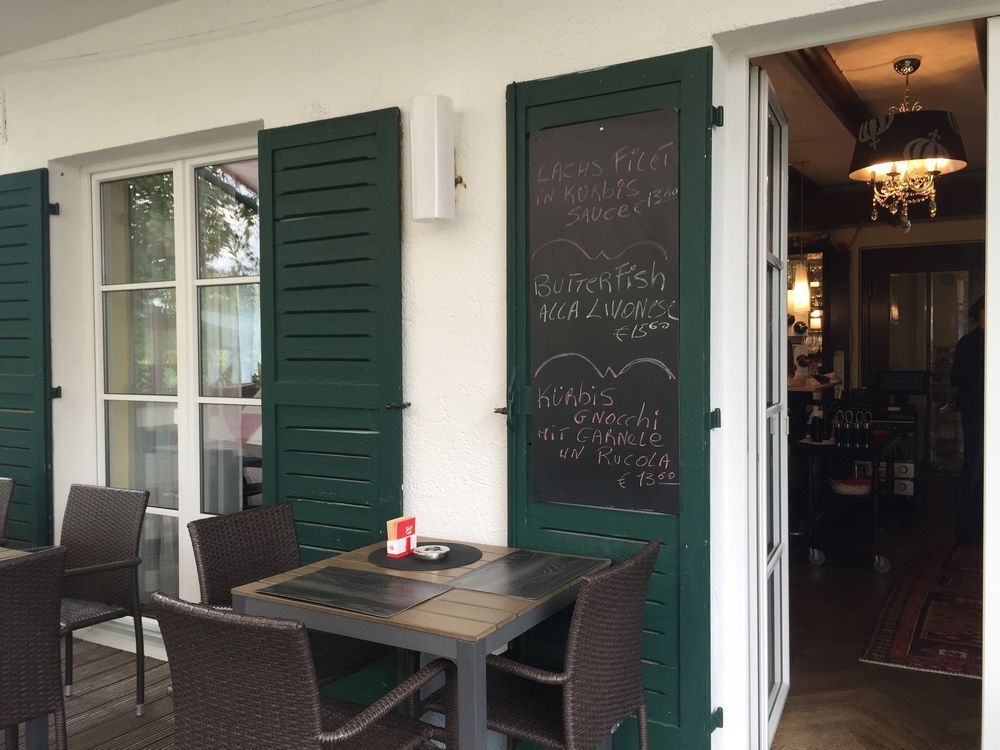 LACHS FILET
IN KÜRBIS
SAUCE €13.80
BUTTERFISH
ALLA LIVONESE
€ 15.60
KÜRBIS
GNOCCHI
MIT GARNELE
UN RUCOLA
€ 13.60